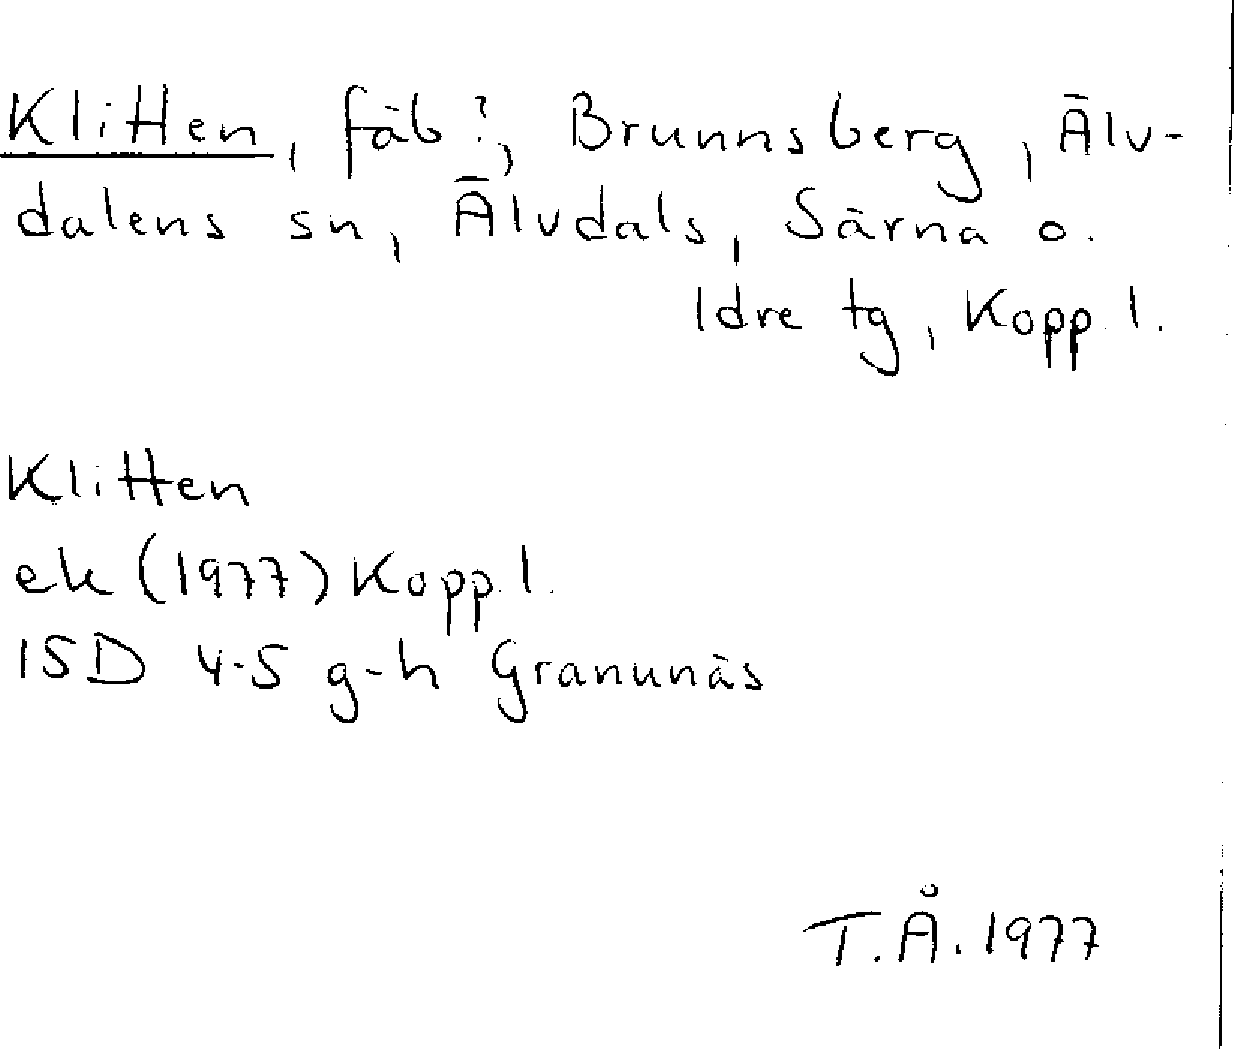 Klitten, fäb?, Brunnsberg, Älv-
dalens sn, Älvdals, Särna o.
Idre tg, Kopp. l.
Klitten
ek (1977) Kopp. l.
15D 4-5 g-h Granunäs
T.Å. 1977